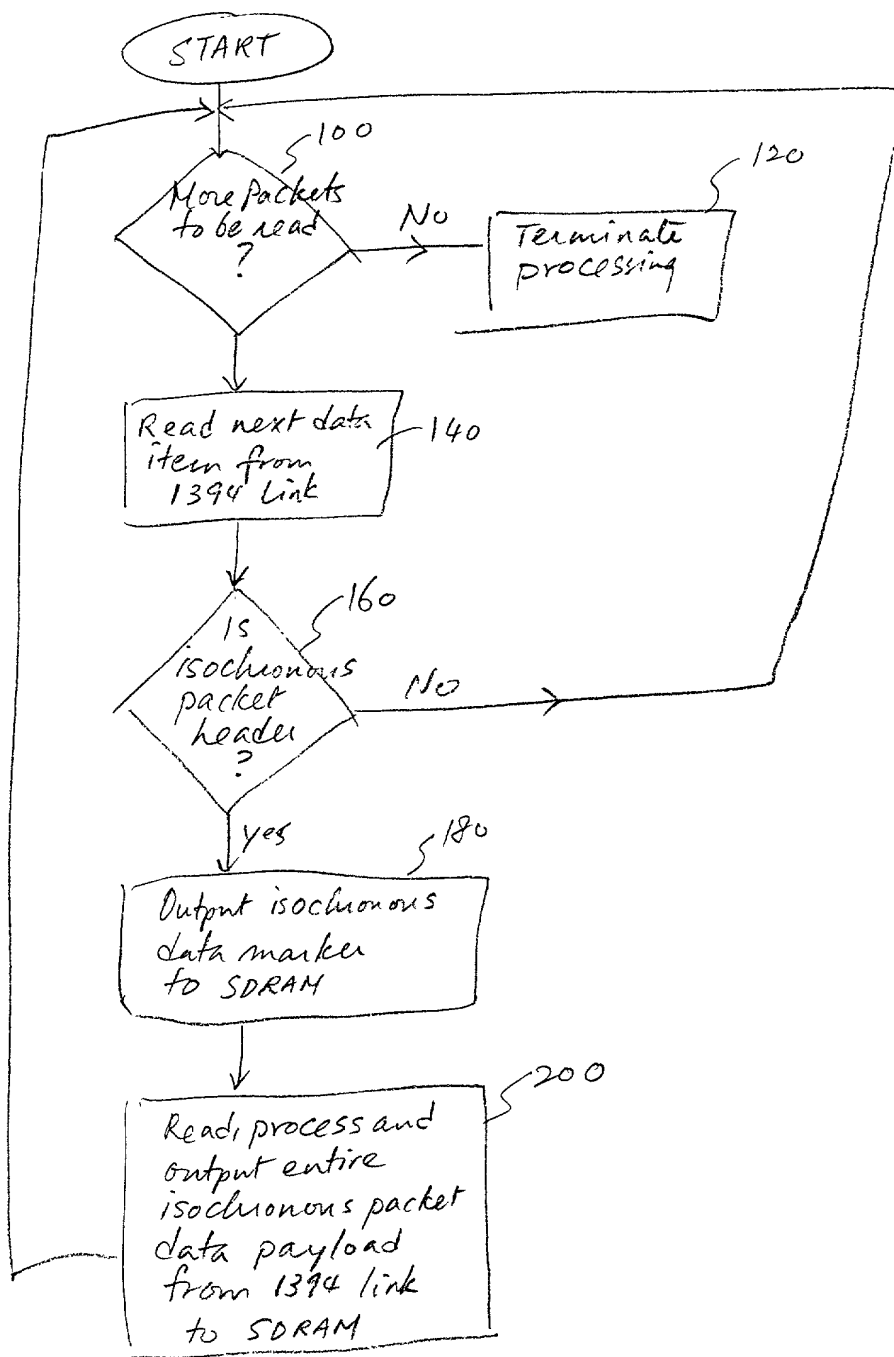 START
100
More Packets
to be read
?
No
120
Terminate
processing
Read next data
item from
1394 link
140
160
Is
isochronous
packet
header
?
No
yes
180
Output isochronous
data marker
to SDRAM
200
Read, process and
output entire
isochronous packet
data payload
from 1394 link
to SDRAM